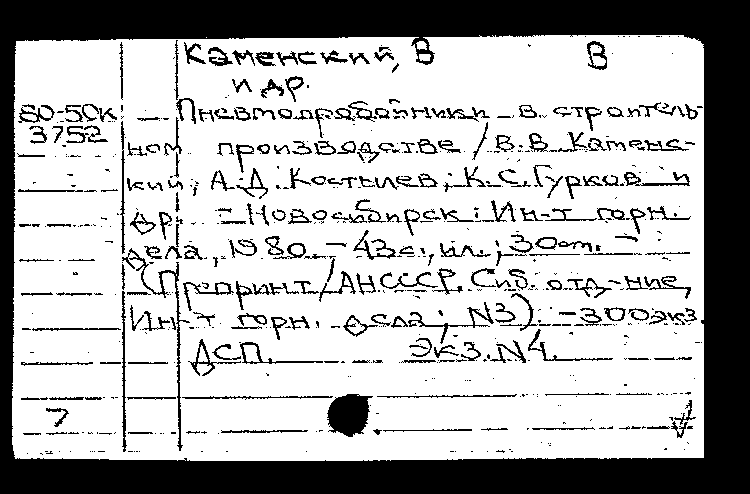 Каменский, В В
и др.
80-50к — Пневмопробойники в строитель-
3752 ном производстве / В.В. Каменс-
кий, А.Д. Костылев, К.С. Гурков и
др. – Новосибирск: Ин-т горн.
дела, 1980. – 43 с., ил.; 30 см. –
(Препринт / АН СССР. Сиб. отд-ние,
Ин-т горн. дела; N3). – 300 экз.
ДСП. Экз. N4.
7 V